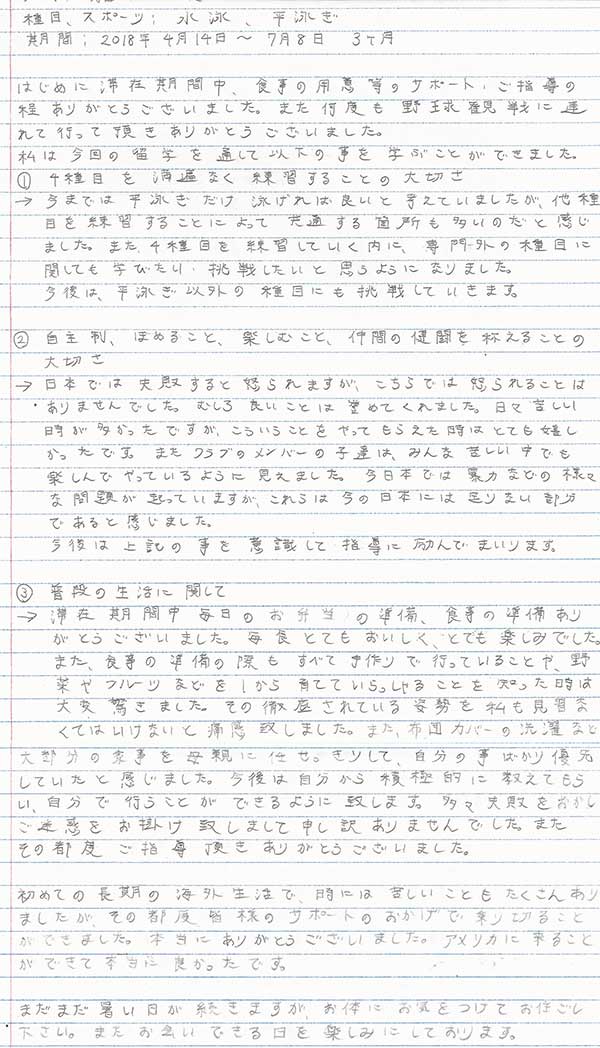 種目、スポーツ; 水泳、平泳ぎ
期間; 2018年 4月14日〜 7月8日 3ヶ月
はじめに滞在期間中、食事の用意等のサポート、ご指導の
程ありがとうございました。また何度も野球観戦に連
れて行って頂きありがとうございました。
私は今回の留学を通して以下の事を学ぶことができました。
① 4種目を満遍なく練習することの大切さ
→ 今までは平泳ぎだけ泳げれば良いと考えていましたが、他種
目を練習することによって共通する箇所も多いのだと感じ
ました。また、4種目を練習していく内に、専門外の種目に
関しても学びたい・挑戦したいと思うようになりました。
今後は、平泳ぎ以外の種目にも挑戦していきます。
② 自主制、ほめること、楽しむこと、仲間の健闘を称えることの
大切さ
→ 日本では失敗すると怒られますが、こちらでは怒られることは
ありませんでした。むしろ良いことは誉めてくれました。日々苦しい
時が多かったですが、こういうことをやってもらえた時はとても嬉し
かったです。またクラブのメンバーの子達は、みんな苦しい中でも
楽しんでやっているように見えました。今日本では暴力などの様々
な問題が起っていますが、これらは今の日本には足りない部分
であると感じました。
今後は上記の事を意識して指導に励んでまいります。
③ 普段の生活に関して
→ 滞在期間中毎日のお弁当の準備、食事の準備あり
がとうございました。毎食とてもおいしく、とても楽しみでした。
また、食事の準備の際もすべて手作りで行っていることや、野
菜やフルーツなどを1から育てていらっしゃることを知った時は
大変驚きました。その徹底されている姿勢を私も見習わな
くてはいけないと痛感致しました。また、布団カバーの洗濯など
大部分の家事を母親に任せっきりして、自分の事ばかり優先
していたと感じました。今後は自分から積極的に教えてもら
い、自分で行うことができるように致します。多々失敗をおかし
ご迷惑をお掛け致しまして申し訳ありませんでした。また
その都度ご指導頂きありがとうございました。
初めての長期の海外生活で、時には苦しいこともたくさんあり
ましたが、その都度皆様のサポートのおかげで乗り切ること
ができました。本当にありがとうございました。アメリカに来ること
ができて本当に良かったです。
まだまだ暑い日が続きますが、お体にお気をつけてお過ごし
下さい。またお会いできる日を楽しみにしております。